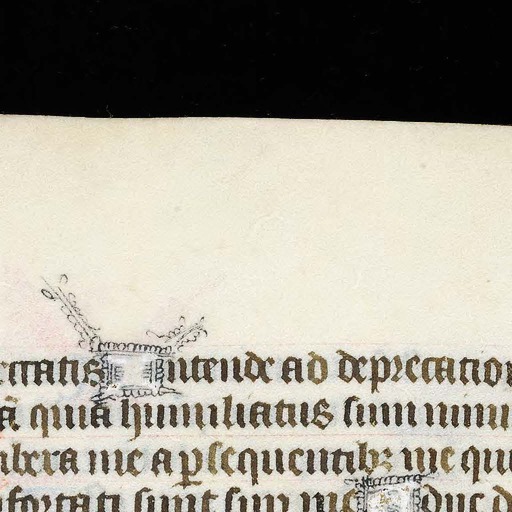 ccatis Intende ad deprecatio
ā quia humiliatus sum nimi
libera me a ꝑsequentibꝫ me qui
nfortati sunt sup me Educ d